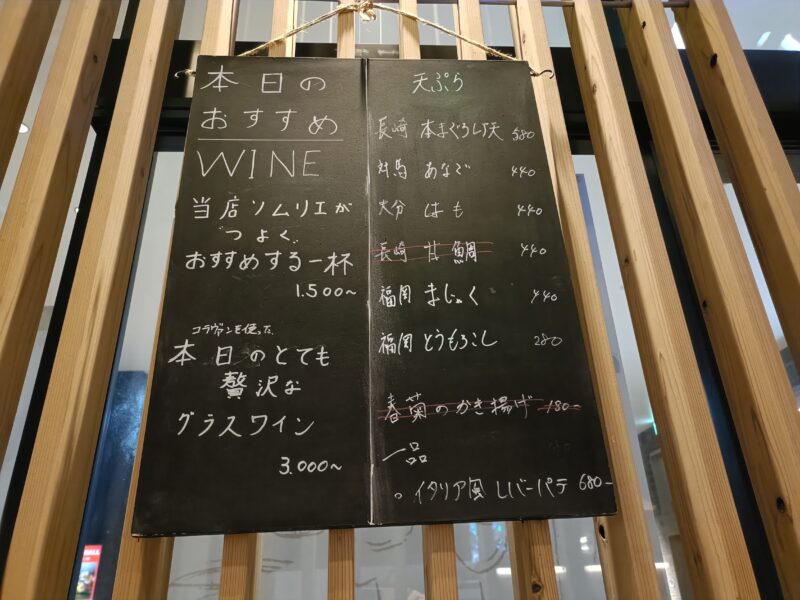 本日の
おすすめ
WINE
当店ソムリエが
"つよく"
おすすめする一杯
1.500～
コラヴァンを使った
本日のとても
贅沢な
グラスワイン
3.000～
天ぷら
長崎 本まぐろレア天 580
対馬 あなご 440
大分 はも 440
長崎 甘鯛 440
福岡 まじゃく 440
福岡 とうもろこし 280
春菊のかき揚げ 180-
一品
。イタリア風 レバーパテ 680-